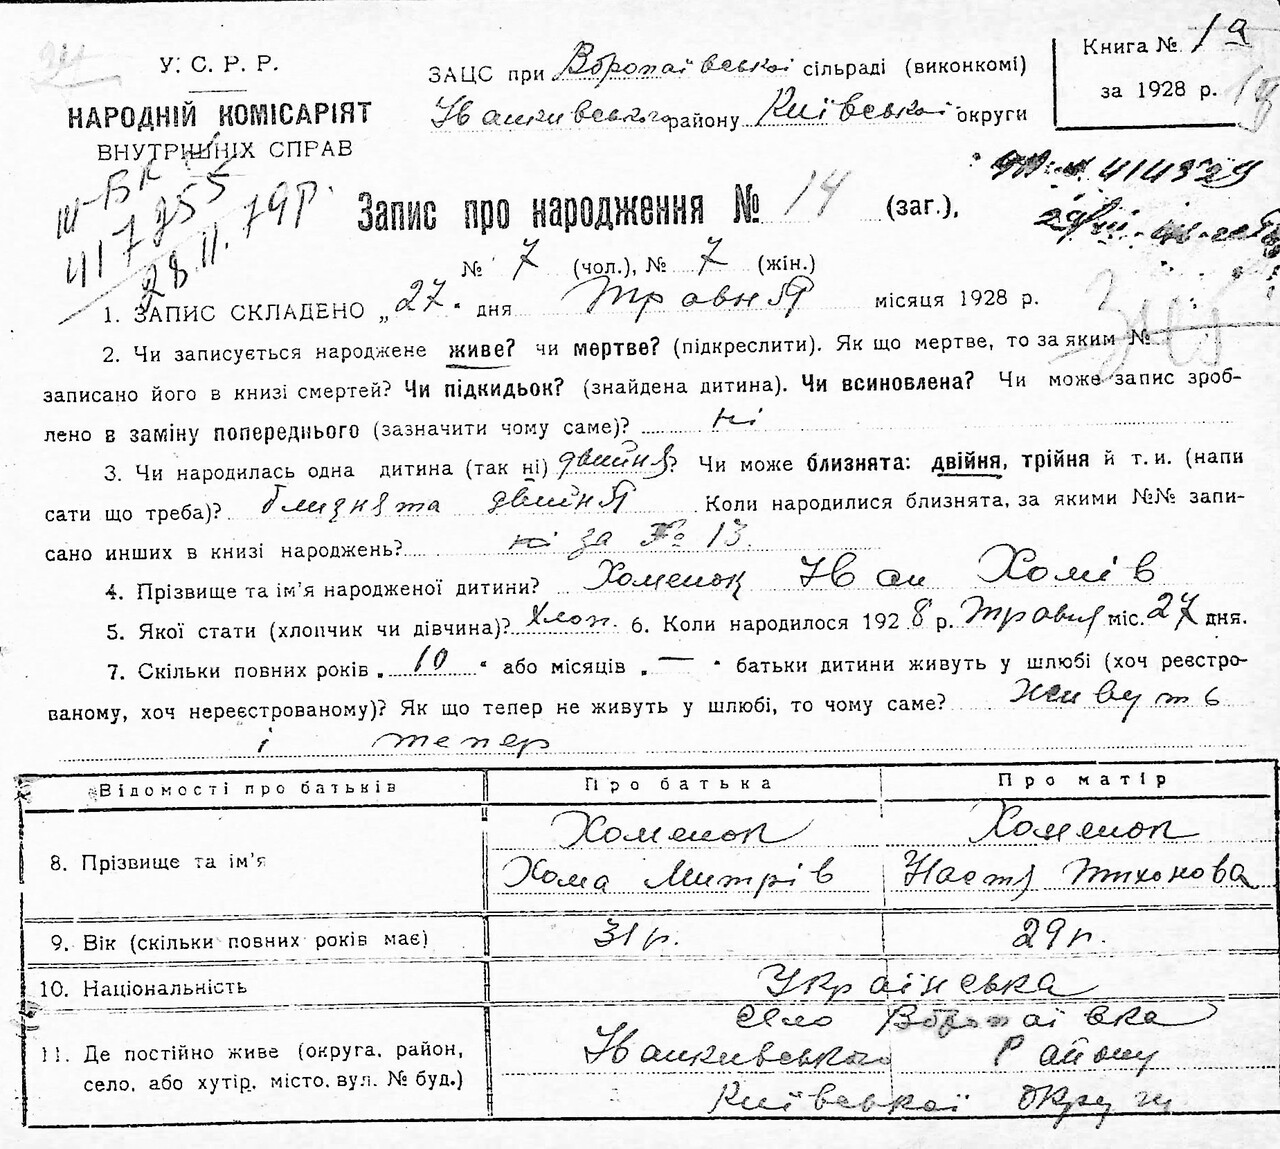 У. С. Р. Р.
НАРОДНІЙ КОМІСАРІЯТ
ВНУТРІШНІХ СПРАВ
ЗАЦС при Воропаївській сільраді (виконкомі)
Іванкивського району Київської округи
Книга № 1а
за 1928 р.
ІІІ-БК
417255
28.11.79р.
414329
Запис про народження № 14 (заг.),
№ 7 (чол.), № 7 (жін.)
1. ЗАПИС СКЛАДЕНО „27" дня травня місяця 1928 р.
2. Чи записується народжене живе? чи мертве? (підкреслити). Як що мертве, то за яким №
записано його в книзі смертей? Чи підкидьок? (знайдена дитина). Чи всиновлена? Чи може запис зроб-
лено в заміну попереднього (зазначити чому саме)? ні
3. Чи народилась одна дитина (так ні) двийня? Чи може близнята: двійня, трійня й т. и. (напи
сати що треба)? близнята двийня Коли народилися близнята, за якими №№ запи-
сано инших в книзі народжень? ні за № 13.
4. Прізвище та ім'я народженої дитини? Хоменок Іван Хомів
5. Якої стати (хлопчик чи дівчина)? хлоп. 6. Коли народилося 1928 р. травня міс. 27 дня.
7. Скільки повних років „10" або місяців „—" батьки дитини живуть у шлюбі (хоч реєстро-
ваному, хоч нереєстрованому)? Як що тепер не живуть у шлюбі, то чому саме? живуть
і тепер
Відомості про батьків Про батька Про матір
8. Прізвище та ім'я Хоменок Хоменок
Хома Митрів Настя Тихонова
9. Вік (скільки повних років має) 31 р. 29 р.
10. Національність Українська
село Воропаївка
11. Де постійно живе (округа, район, Іванкивського Району
село, або хутір, місто, вул. № буд.)
Київської округи